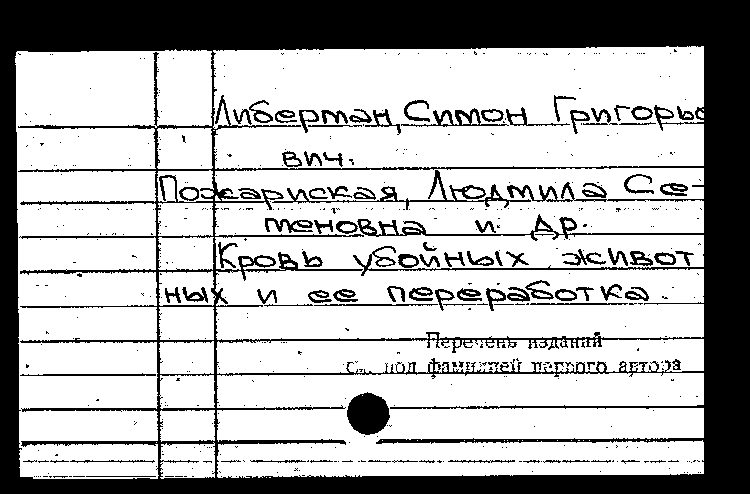 Либерман, Симон Григорье
вич.
Пожариская, Людмила Се-
меновна и др.
Кровь убойных живот
ных и ее переработка.
Перечень изданий
См. под фамилией первого автора